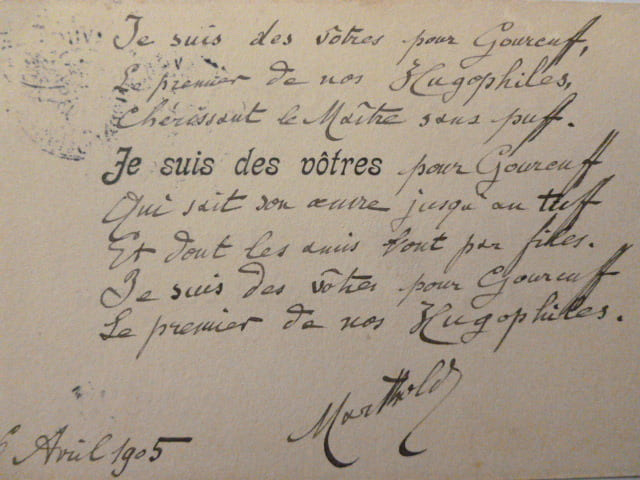 Je suis des vôtres pour Gourcuff,
Le premier de nos Hugophiles,
Chérissant le Maître sans puff.
Je suis des vôtres pour Gourcuff
Qui sait son œuvre jusqu'au tuf
Et dont les amis vont par files.
Je suis des vôtres pour Gourcuff
Le premier de nos Hugophiles.
Marthold
6 Avril 1905